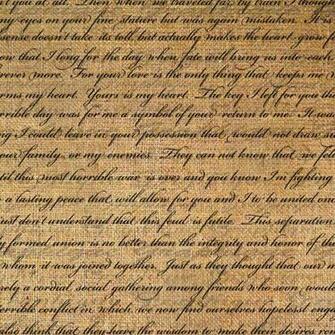 you at all. Then when we traveled far by train I thought
my eyes on your fine stature but was again mistaken. It
sense doesn't take its toll, but actually makes the heart grow
now that I long for the day when fate will bring us into each
ever more. For your love is the only thing that keeps me
rms my heart. Yours is my heart. The key I left for you thi
rrible day was for me a symbol of your return to me. It was
ng I could leave in your possession that would not draw
our family, or my enemies. They can not know that we
til this most horrible war is over and you know I'm fighting
a lasting peace that will allow for you and I to be united
rest don't understand that this feud is futile. This separation
y formed union is no better than the integrity and honor of
whom it was joined together. Just as they thought that our
rely a cordial social gathering among friends who soon would
errible conflict in which we now find ourselves hopelessly
also think that they have the wisdom to make their